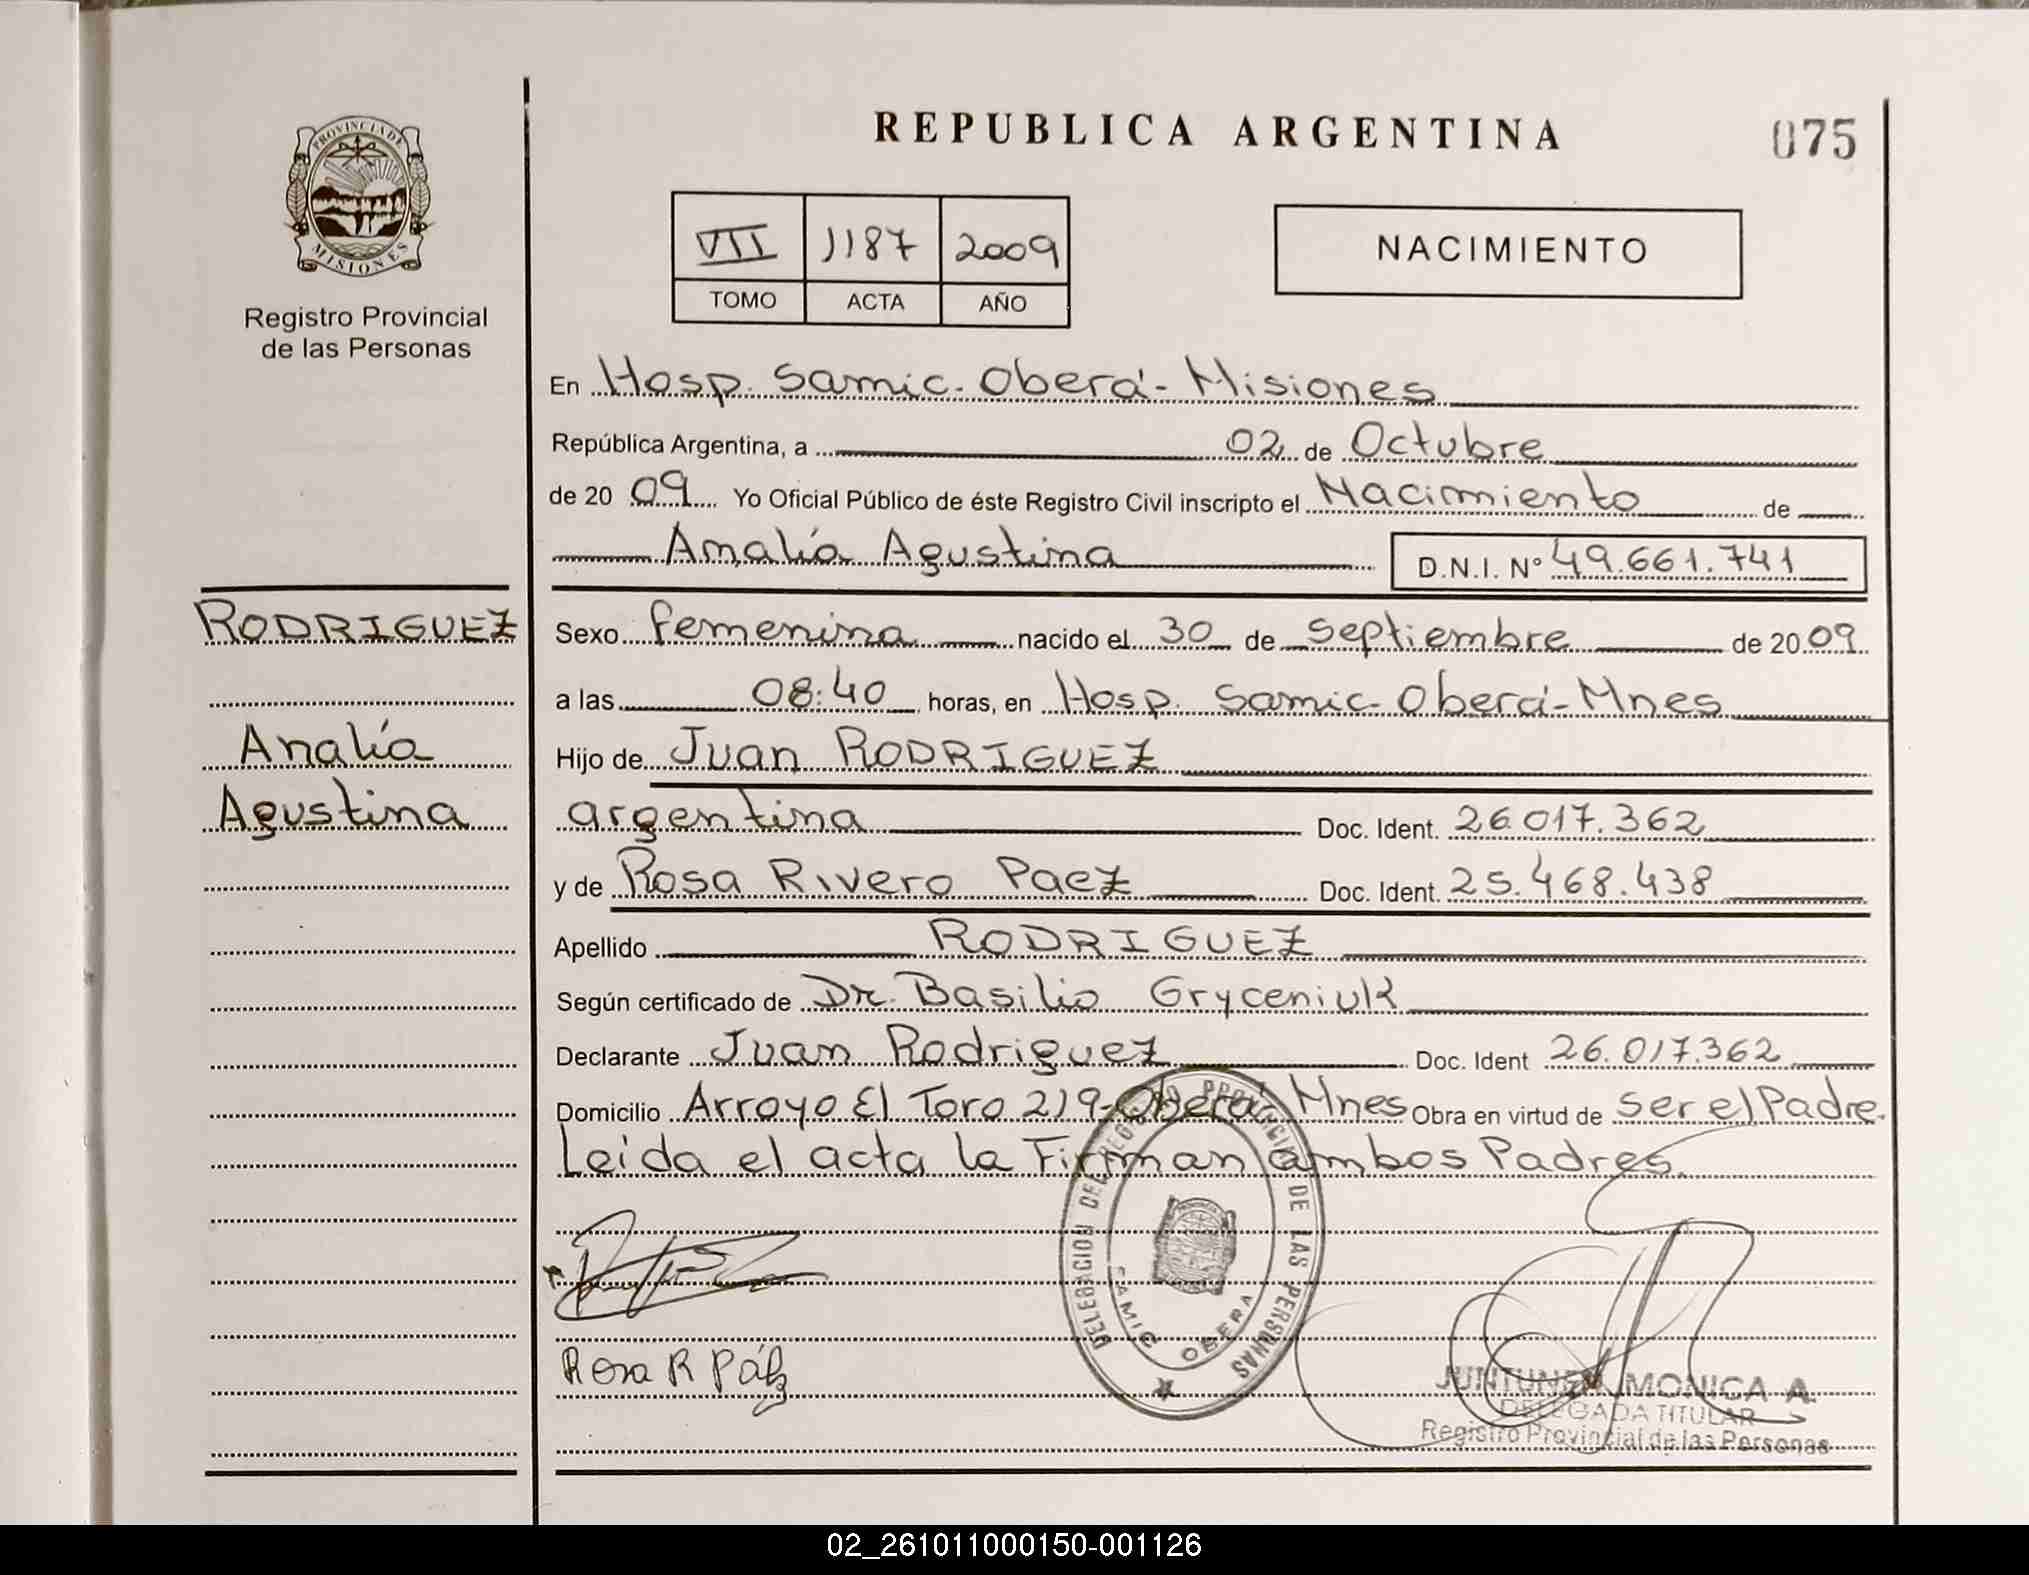 REPUBLICA ARGENTINA
075
PROVINCIA DE
MISIONES
Registro Provincial
de las Personas
VII 1187 2009
TOMO ACTA AÑO
NACIMIENTO
En Hosp. Samic. Oberá - Misiones
República Argentina, a 02 de Octubre
de 20 09 Yo Oficial Público de éste Registro Civil inscripto el Nacimiento de
Analía Agustina D.N.I. Nº 49.661.741
RODRIGUEZ
Analía
Agustina
Sexo femenina nacido el 30 de Septiembre de 2009
a las 08:40 horas, en Hosp. Samic. Oberá - Mnes
Hijo de Juan RODRIGUEZ
argentina Doc. Ident. 26.017.362
y de Rosa Rivero Paez Doc. Ident. 25.468.438
Apellido RODRIGUEZ
Según certificado de Dr. Basilio Gryceniuk
Declarante Juan Rodriguez Doc. Ident 26.017.362
Domicilio Arroyo El Toro 219 - Oberá Mnes Obra en virtud de ser el Padre.
Leida el acta la Firman ambos Padres.
DELEGACION DEL REGISTRO PROVINCIAL DE LAS PERSONAS
SAMIC OBERA
Rosa R Páez
JUNTUNEN MONICA A.
DELEGADA TITULAR
Registro Provincial de las Personas
02_261011000150-001126